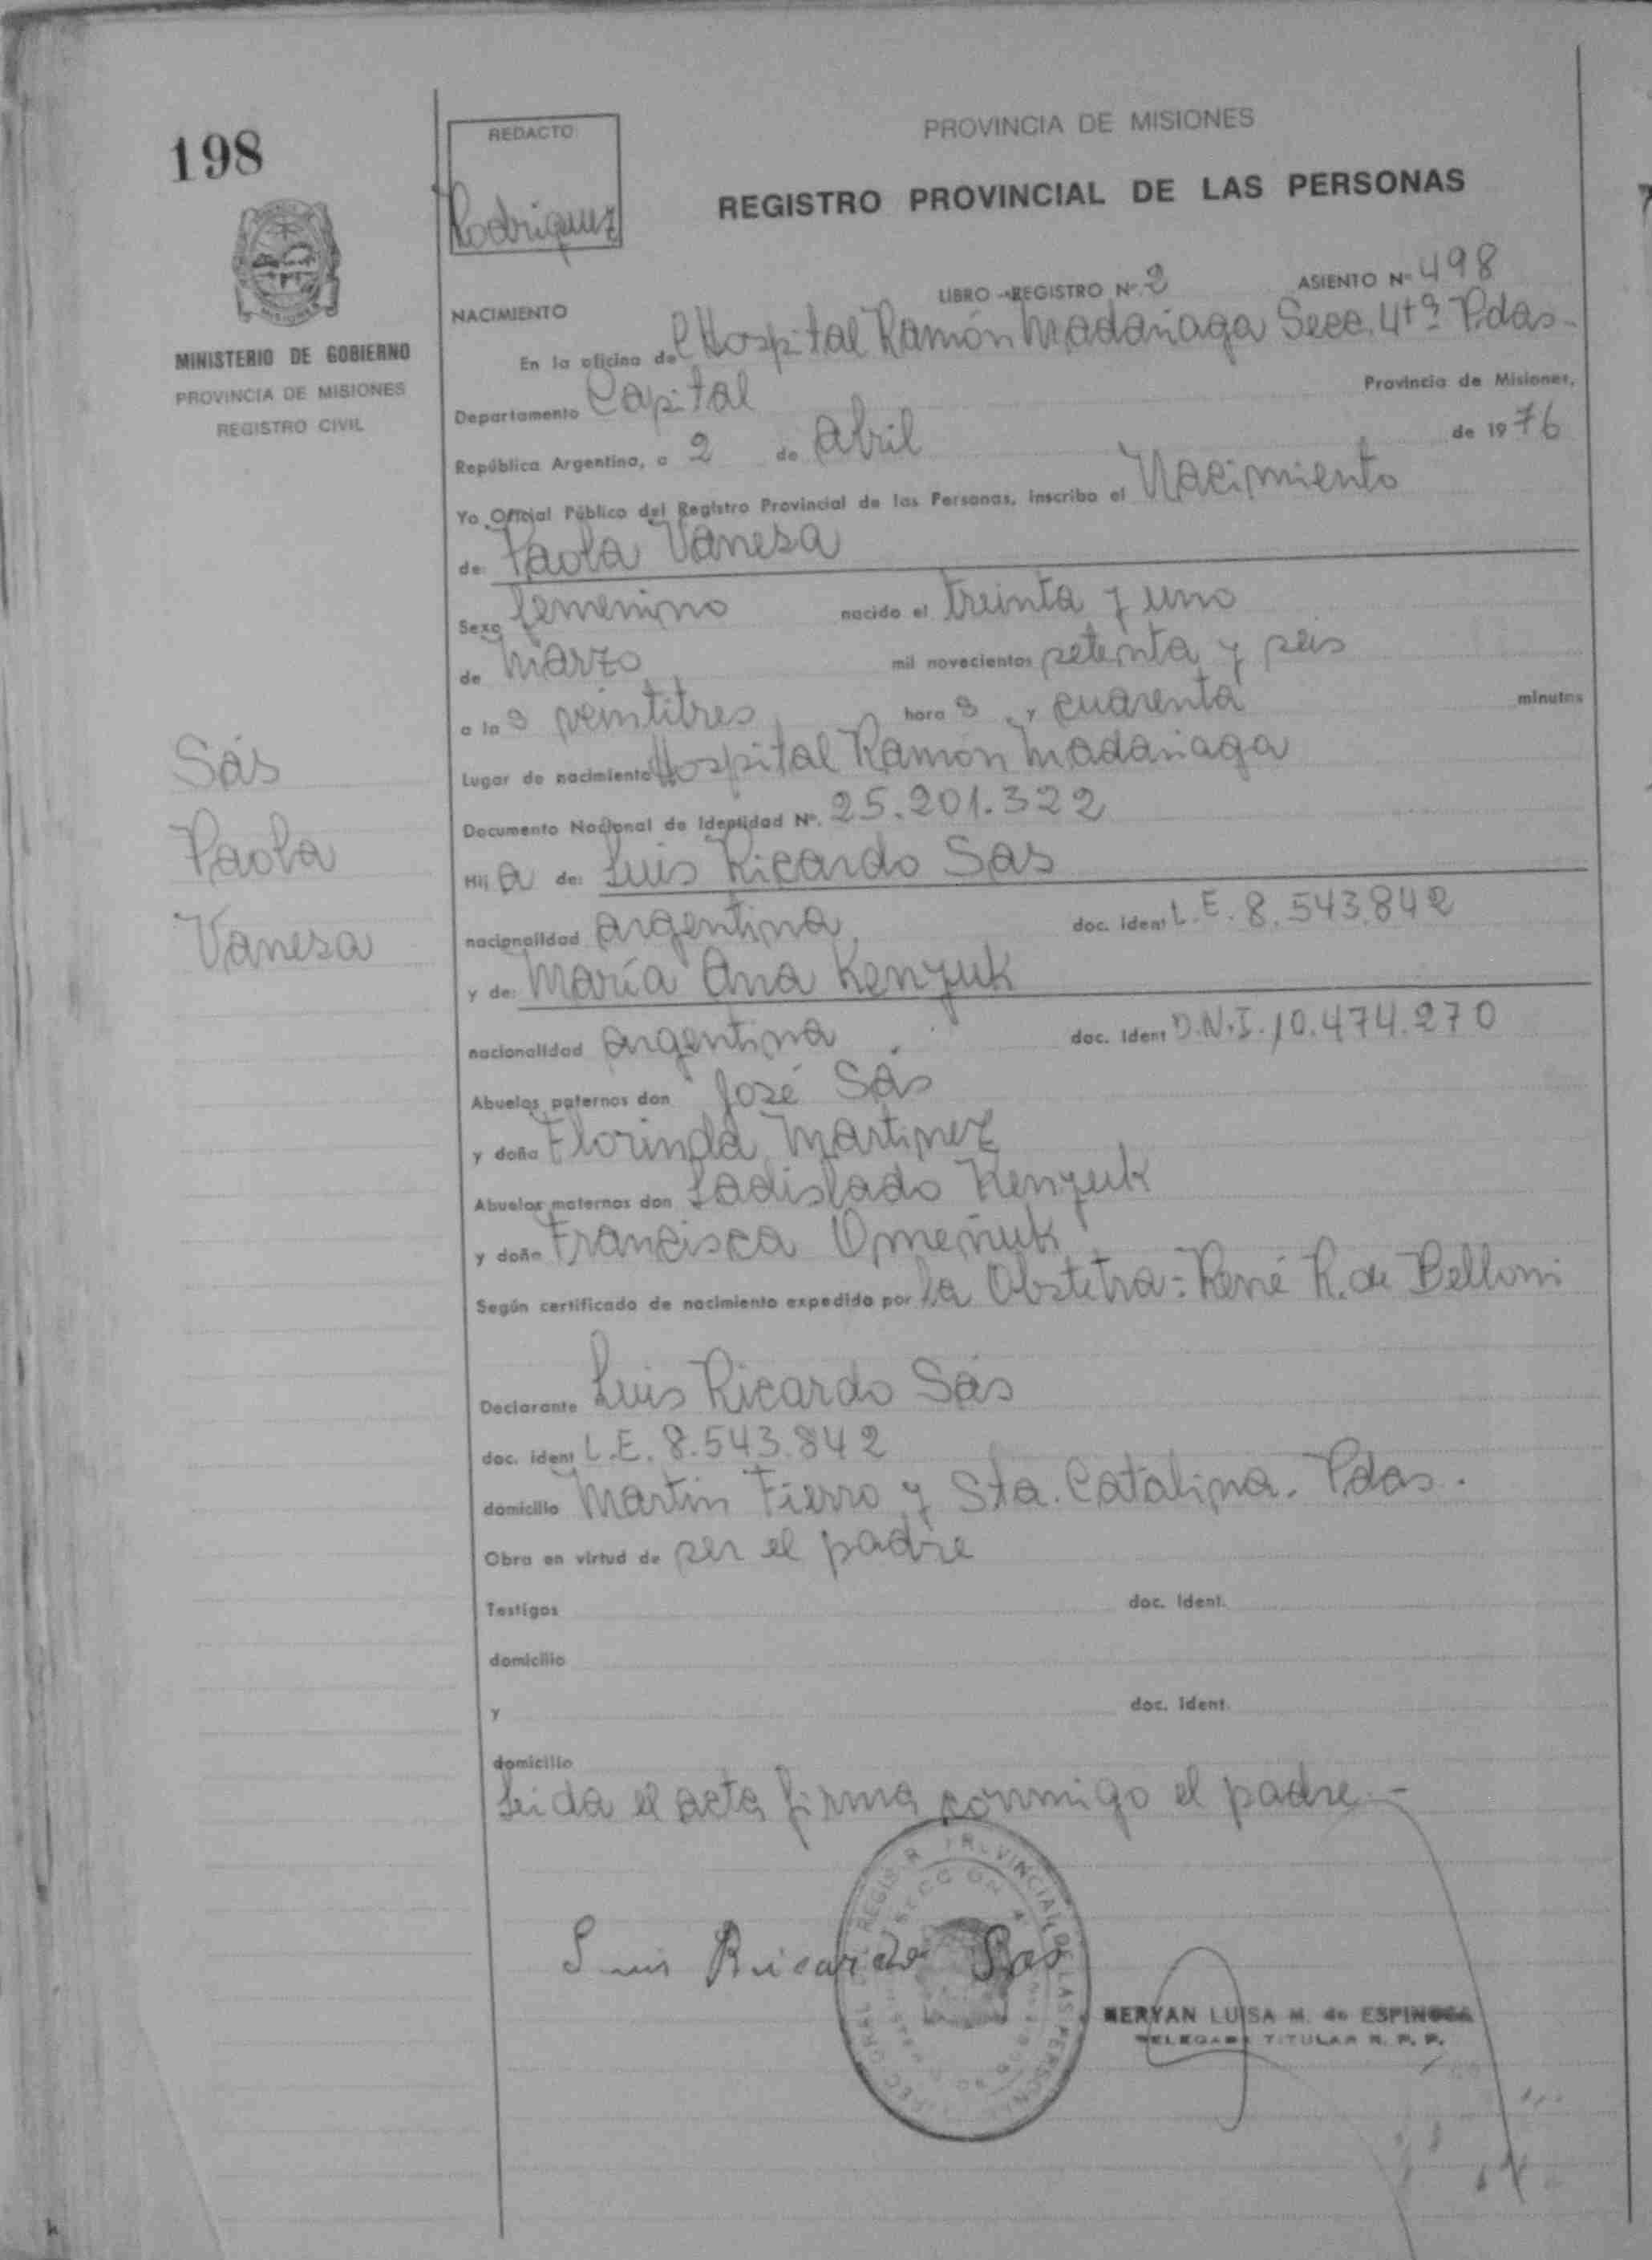 198
REDACTO
Rodriguez
PROVINCIA DE MISIONES
REGISTRO PROVINCIAL DE LAS PERSONAS
MINISTERIO DE GOBIERNO
PROVINCIA DE MISIONES
REGISTRO CIVIL
LIBRO - REGISTRO Nº 2 ASIENTO Nº 498
NACIMIENTO
En la oficina del Hospital Ramón Madariaga Secc. 4tª Pdas-
Departamento Capital Provincia de Misiones,
República Argentina, a 2 de Abril de 1976
Yo Oficial Público del Registro Provincial de las Personas, inscribo el Nacimiento
de: Paola Vanesa
Sexo femenino nacido el treinta y uno
de Marzo mil novecientos setenta y seis
a las veintitres horas y cuarenta minutos
Lugar de nacimiento Hospital Ramón Madariaga
Documento Nacional de Identidad Nº. 25.201.322
Hija de: Luis Ricardo Sas
nacionalidad argentina doc. Ident L.E. 8.543.842
y de: María Ana Kenyuk
nacionalidad argentina doc. Ident D.N.I. 10.474.270
Abuelos paternos don José Sás
y doña Florinda Martinez
Abuelos maternos don Ladislado Kenyuk
y doña Francisca Omeñuk
Según certificado de nacimiento expedido por la Obstetra: René R. de Belloni
Declarante Luis Ricardo Sás
doc. ident L.E. 8.543.842
domicilio Martin Fierro y Sta. Catalina. Pdas.
Obra en virtud de ser el padre
Testigos doc. Ident.
domicilio
y doc. Ident.
domicilio
Leida el acta firma conmigo el padre.-
Sás
Paola
Vanesa
Luis Ricardo Sas
REGIS PROVINCIAL DE LAS PERSON
MERYAN LUISA M. de ESPINOSA
DELEGADA TITULAR R. P. P.